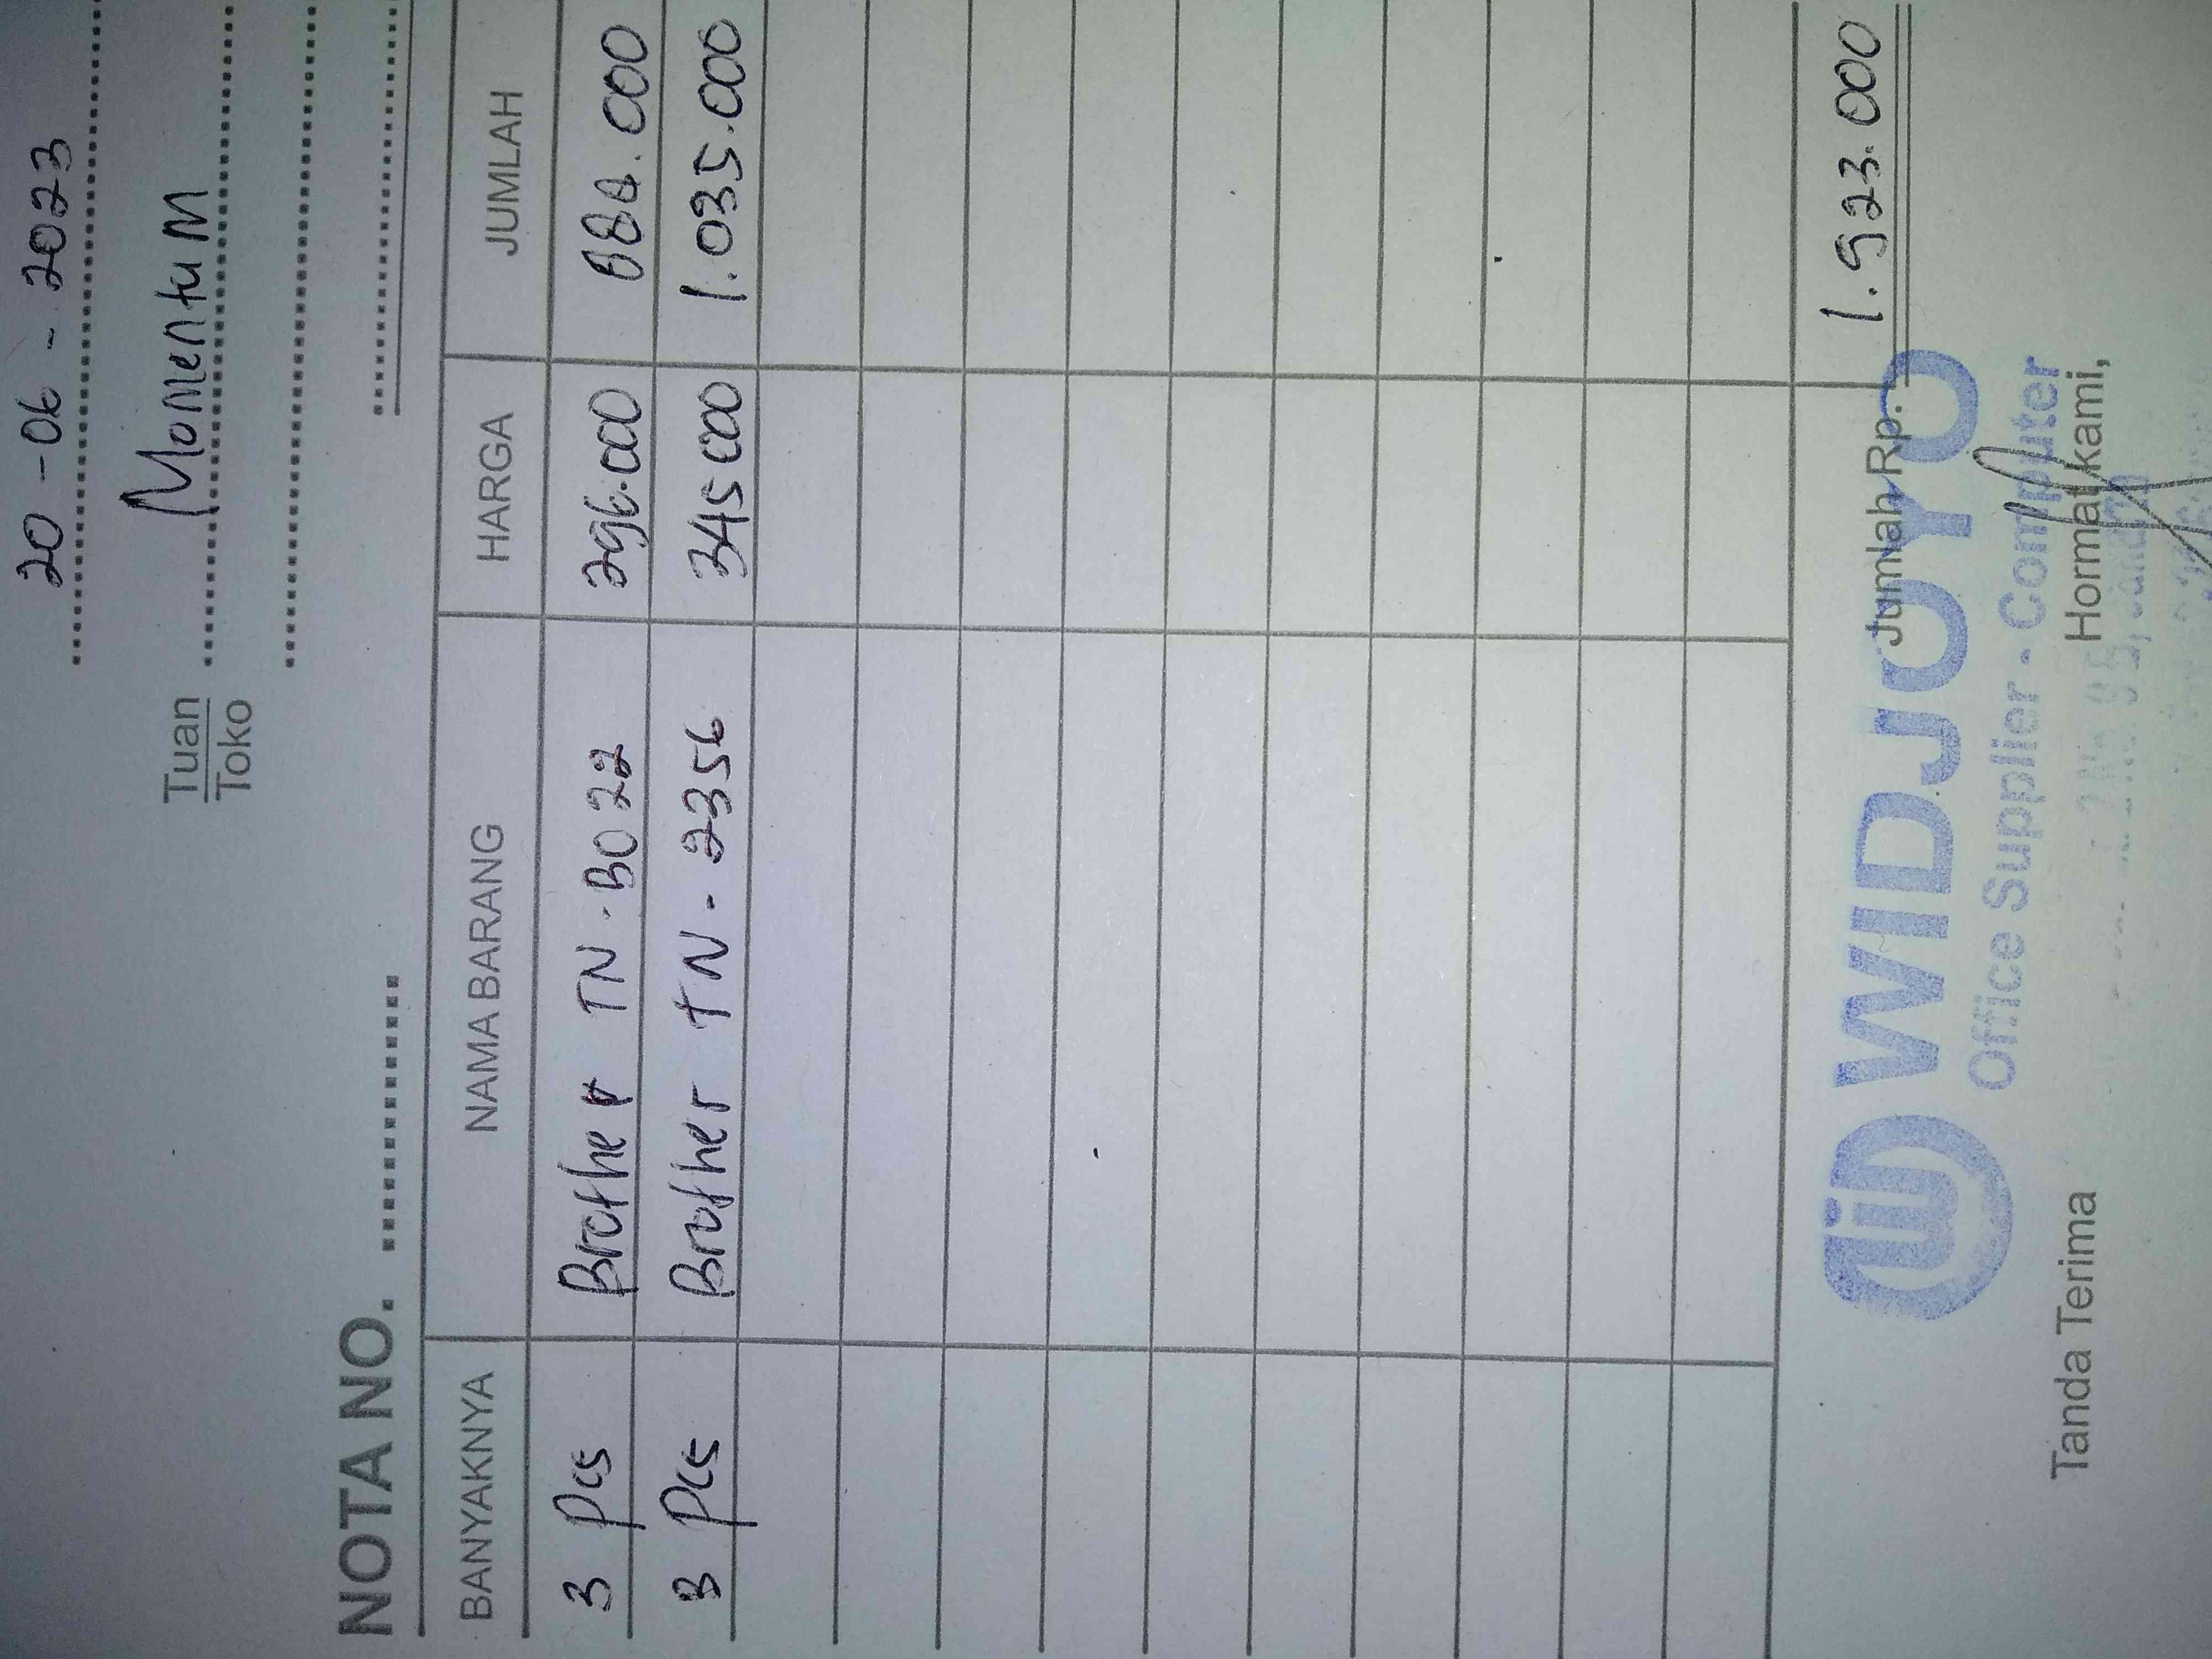 20 - 06 - 2023
Tuan
Toko
Momentum
NOTA NO.
BANYAKNYA NAMA BARANG HARGA JUMLAH
3 Pcs Brother TN-B022 296.000 888.000
3 Pcs Brother TN-2356 345.000 1.035.000
Jumlah Rp. 1.923.000
WIDJOYO
Office Supplier - Computer
Tanda Terima Hormat kami,